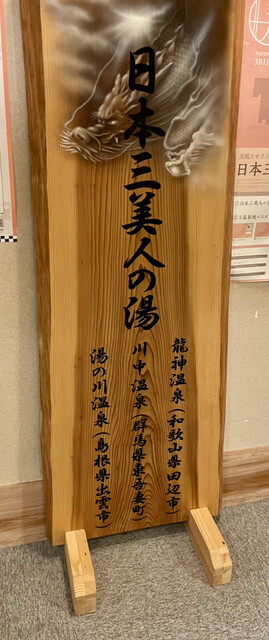 日本三美人の湯
龍神温泉(和歌山県田辺市)
川中温泉(群馬県東吾妻町)
湯の川温泉(島根県出雲市)
日本三